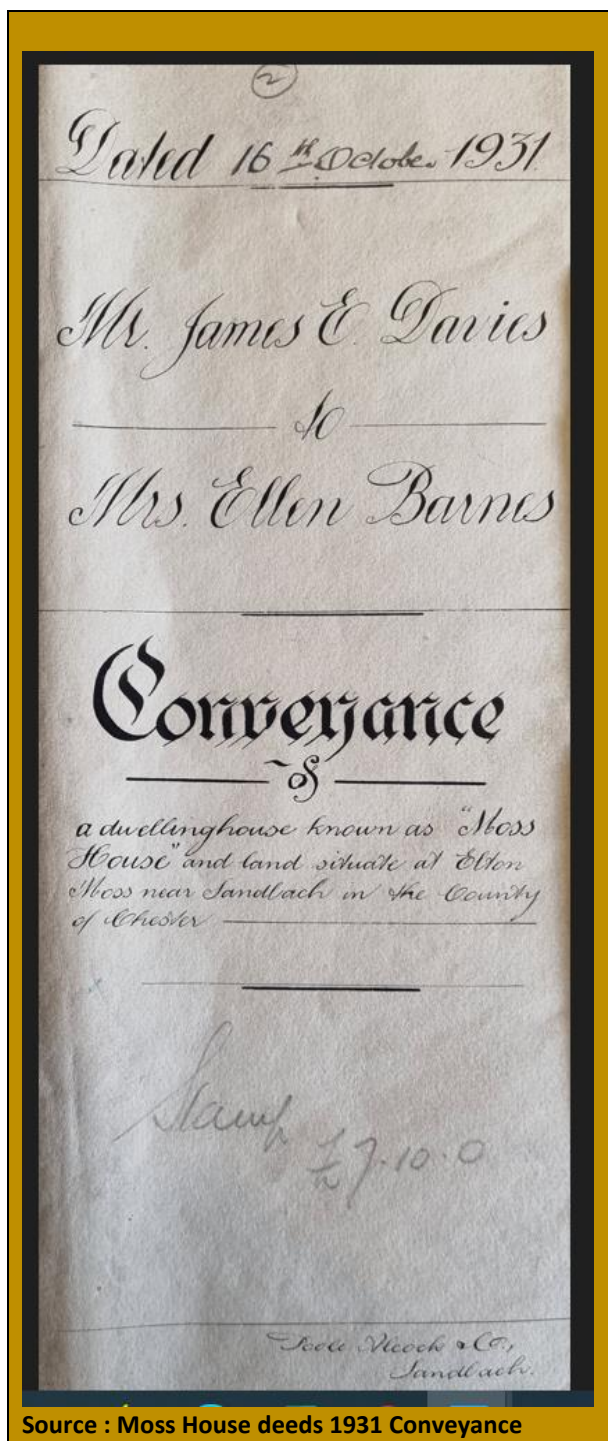 2
Dated 16th October 1931.
Mr. James E. Davies
to
Mrs. Ellen Barnes
Conveyance
of
a dwellinghouse known as "Moss
House" and land situate at Elton
Moss near Sandbach in the County
of Chester
Stamp
£7.10.0
Poole Alcock & Co.,
Sandbach.
Source : Moss House deeds 1931 Conveyance